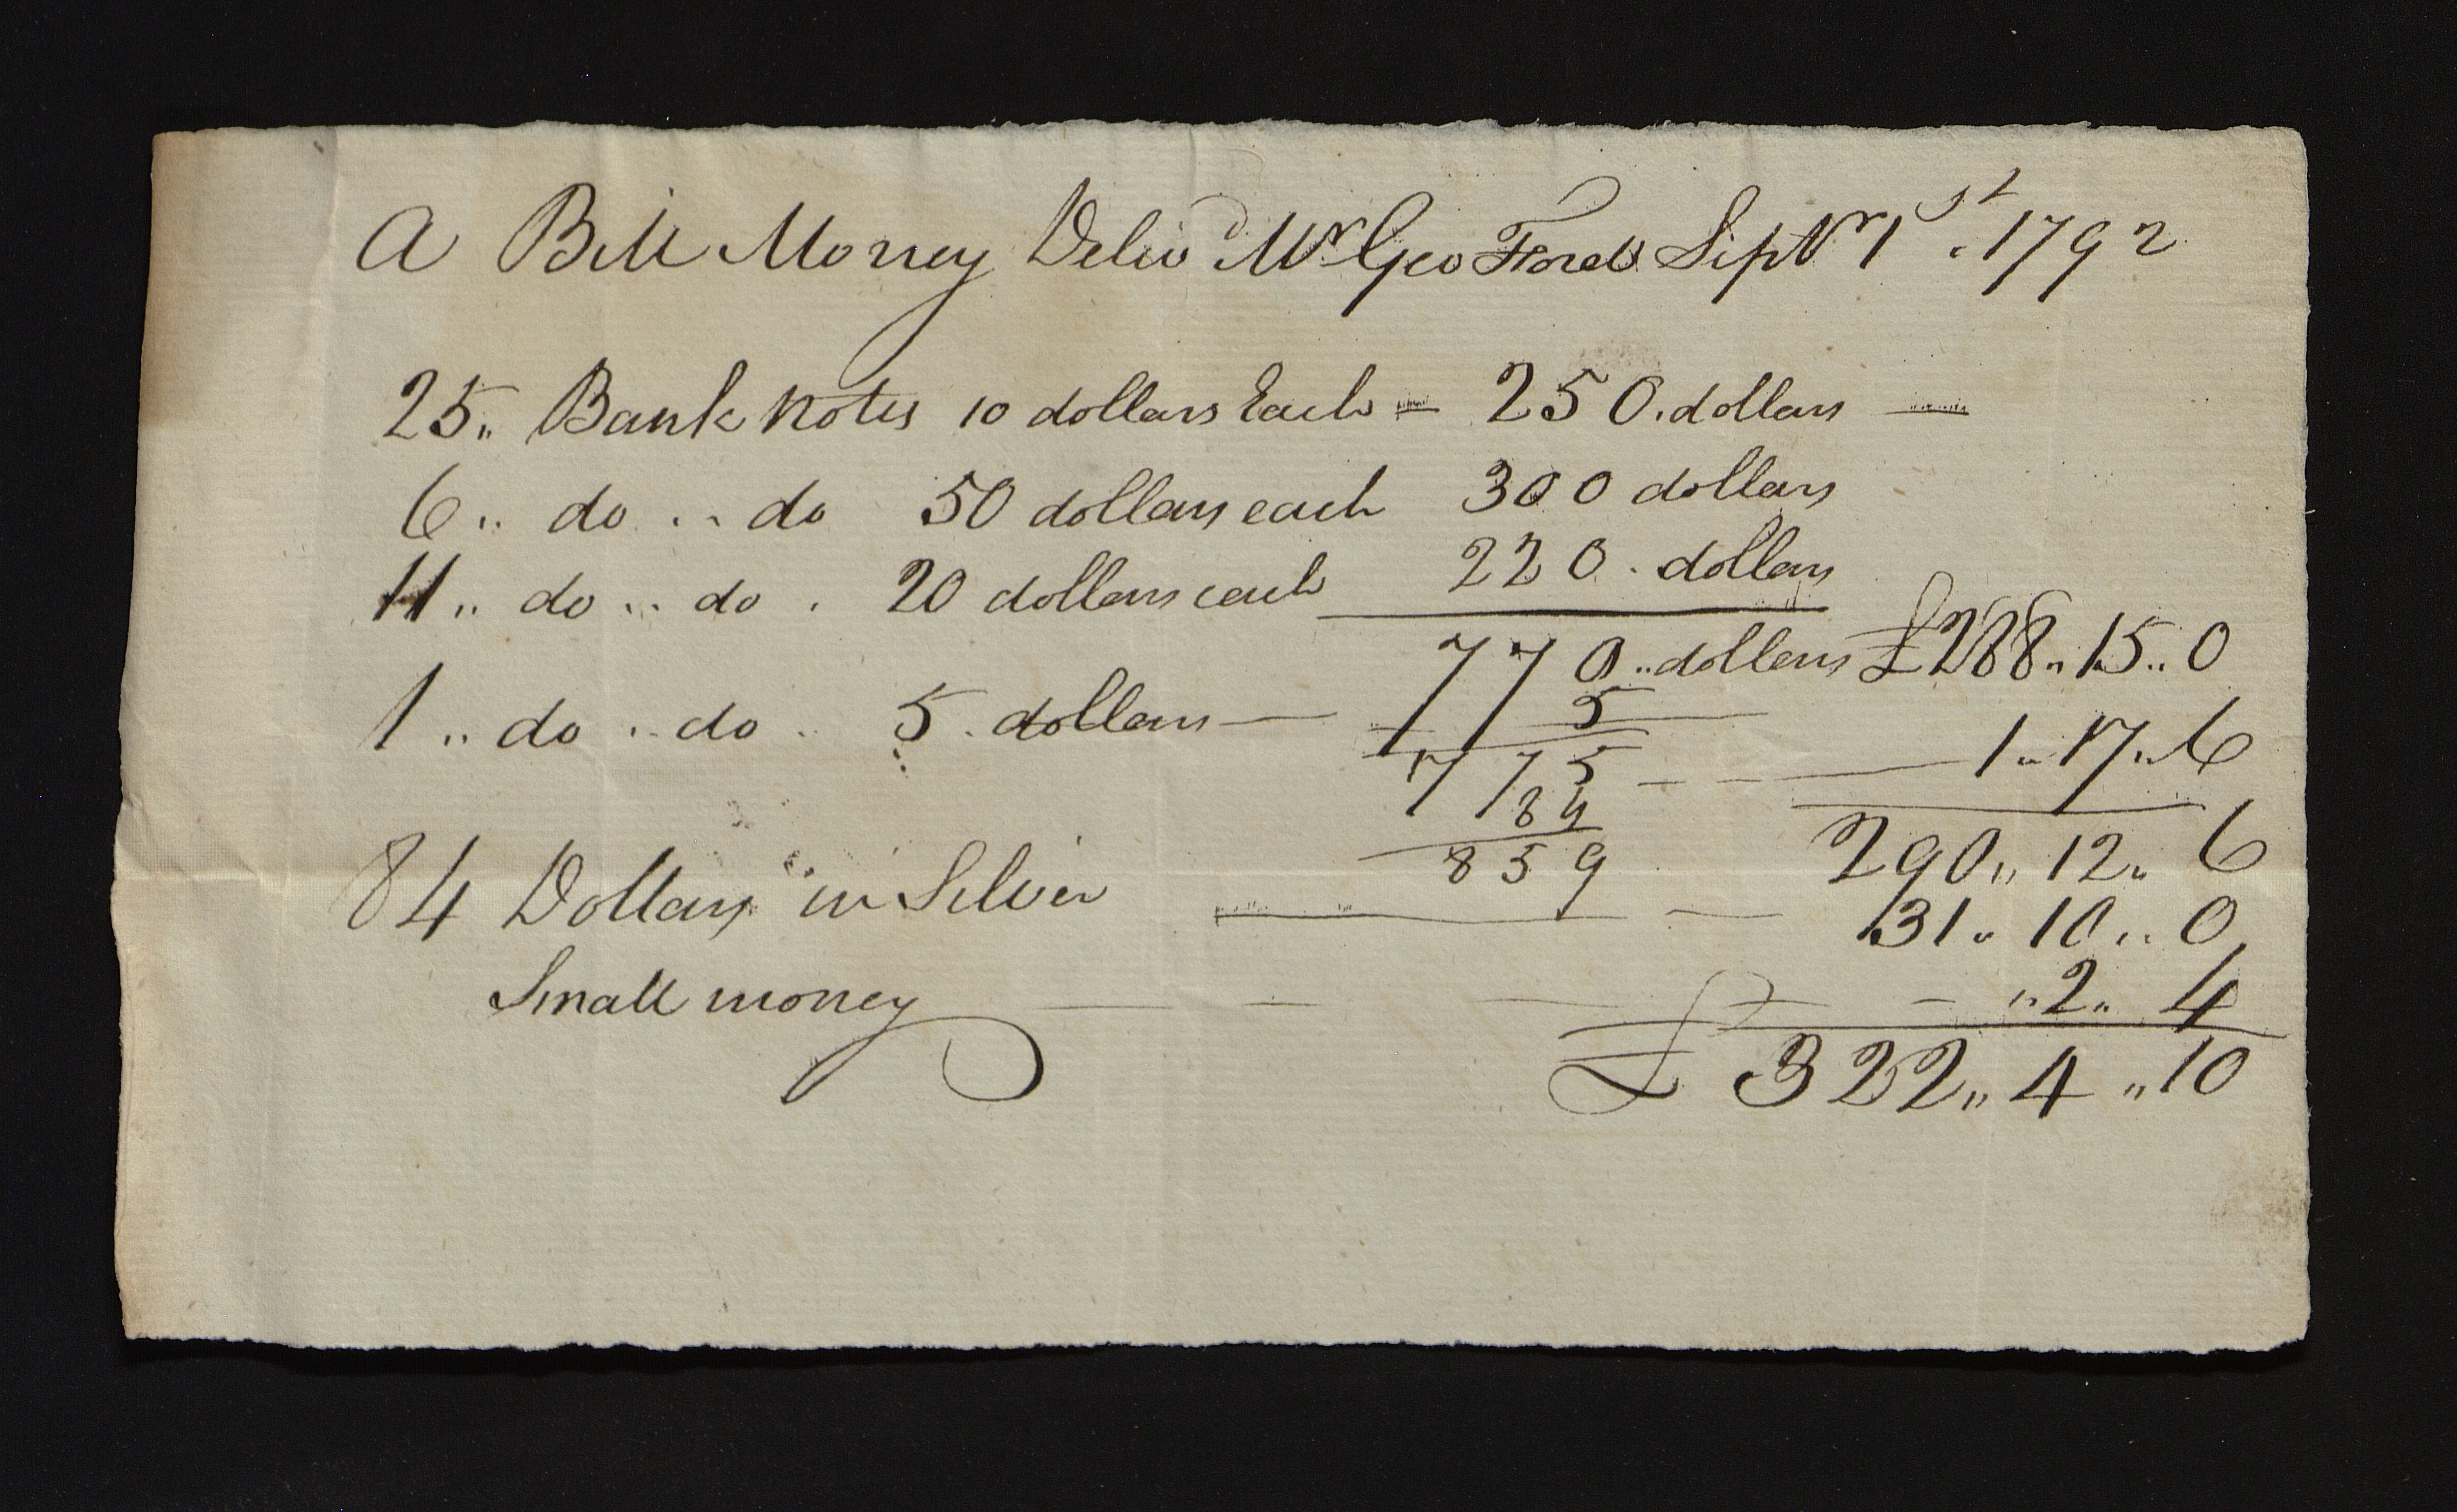 A Bill Money Delivd Mr Geo Ford Septr 1st 1792
25 Bank notes 10 dollars Each = 250 dollars
6 do do 50 dollars each 300 dollars
11 do do 20 dollars each 220 dollars
770 dollars £288 15 0
1 do do 5 dollars — 5
775 — 1 17 6
84
859 290 12 6
84 Dollars in Silver — 31 10 0
Small money — 2 4
£ 322 4 10